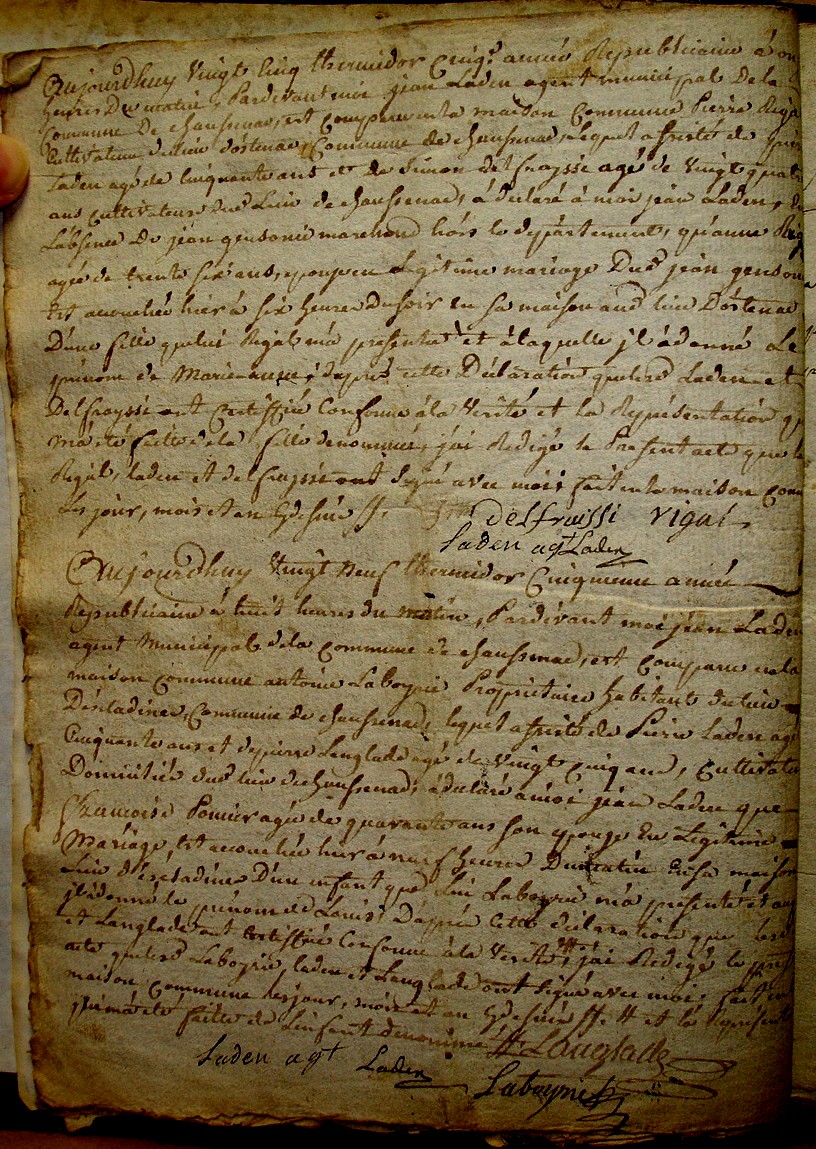 Aujourdhuy vingt cinq thermidor cinq.e année Republicaine à on
heures du matin, Pardevant moi jean Laden agent municipal de la
Commune de chaussenac, est comparu en la maison Commune Pierre Rigal
Cultivateur du lieu d'ostenac, Commune de chaussenac, lequel assisté de pierre
Laden agé de cinquante ans et de Simon Delfraysse agé de vingt quatre
ans cultivateurs dud. Lieu de chaussenac, à déclaré à moi jean Laden,
L'absence de jean gensonie marchand hors le département, qu'anne Rig
agée de trente six ans, epouse en Legitime mariage dud. jean gensonie
est accouchée hier à six heures du soir en sa maison aud. lieu d'ostenac
D'une fille que lui Rigal m'a presenté et à laquelle jl à donné le
prénom de Marie anne, d'après cette Déclaration que lesd. Laden et
Delfraysse ont Certiffié Conforme à la verité et la Représentation qui
m'a été faitte de la fille denommée, j'ai Redigé le Present acte que le
Rigal, laden et delfraysse ont signé avec moi, fait en la maison Comm
Les jour, mois et an qdessus ff.
delfraissi vigal
Laden agt Laden
Aujourdhuy vingt neuf thermidor Cinquieme année
Republicaine à huit heures du matin, Pardevant moi jean Laden
agent Municipal de la Commune de chaussenac, est Comparu en la
maison Commune antoine Laboyrie Propriétaire habitant du lieu
D'ésladines, Commune de chaussenac, lequel assisté de Pierre Laden agé
Cinquante ans et de pierre Langlade agé de vingt cinq ans, Cultivateurs
Domiciliés dud. lieu de chaussenac, à déclaré à moi jean Laden que
Françoise Pomier agée de quarante ans son epouse en Legitime
Mariage, est accouchée hier à neuf heures du matin en sa maison
Lieu d'ésladines D'un enfant que lui Laboyrie m'a presenté et au
jl à donné le prénom de Louis, D'après cette déclaration que lesd.
et Langlade ont Certiffié Conforme à la verité, # et j'ai Redigé le pres
acte que lesd. Laboyrie, laden et Langlade ont signé avec moi; fait en
maison Commune les jour, mois et an qdessus ff. # et la Représent
qui m'a été faitte de L'enfant denommé ff. Langlade
Laden agt Laden
Laboyrie